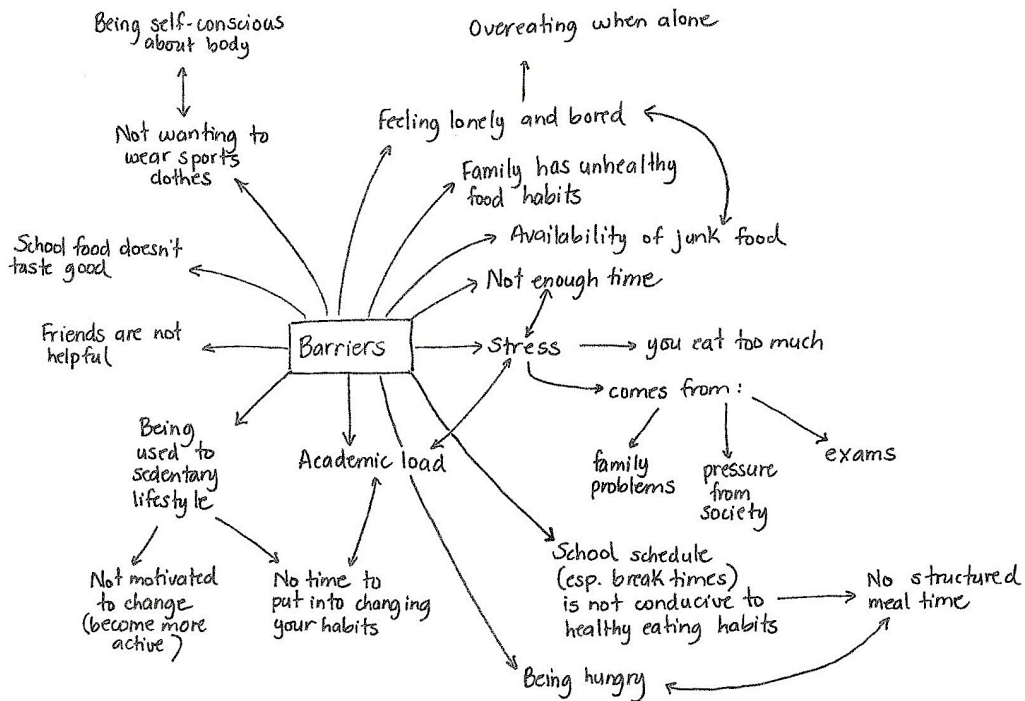 Being self-conscious
about body
Overeating when alone
Not wanting to
wear sports
clothes
Feeling lonely and bored
Family has unhealthy
food habits
School food doesn't
taste good
Availability of junk food
Not enough time
Friends are not
helpful
Barriers
Stress
you eat too much
comes from:
Being
used to
sedentary
lifestyle
Academic load
family
problems
pressure
from
society
exams
Not motivated
to change
(become more
active)
No time to
put into changing
your habits
School schedule
(esp. break times)
is not conducive to
healthy eating habits
No structured
meal time
Being hungry